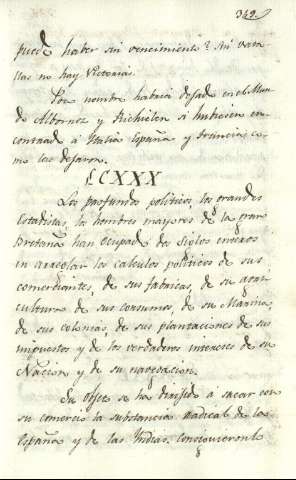 349
puede haber sin vencimiento? Sin bata-
llas no hay Victorias.
Poco nombre habria dejado en el Mun-
do Albornoz y Richielieu si hubiesen en-
contrado á Italia España y Francia, co-
mo las dejaron.
LCXXX
Los profundos politicos, los grandes
Estadistas, los hombres mayores de la gran
Bretaña han ocupado dos siglos enteros
en arreglar los calculos politicos de sus
comerciantes, de sus fabricas, de su agri-
cultura de sus consumos, de su Marina,
de sus colonias, de sus plantaciones de sus
impuestos y de los verdaderos intereses de su
Nacion y de su navegacion.
Su objeto se ha dirigido á sacar con
su comercio la substancia radical de las
Españas y de las Indias. Consiguieronlo